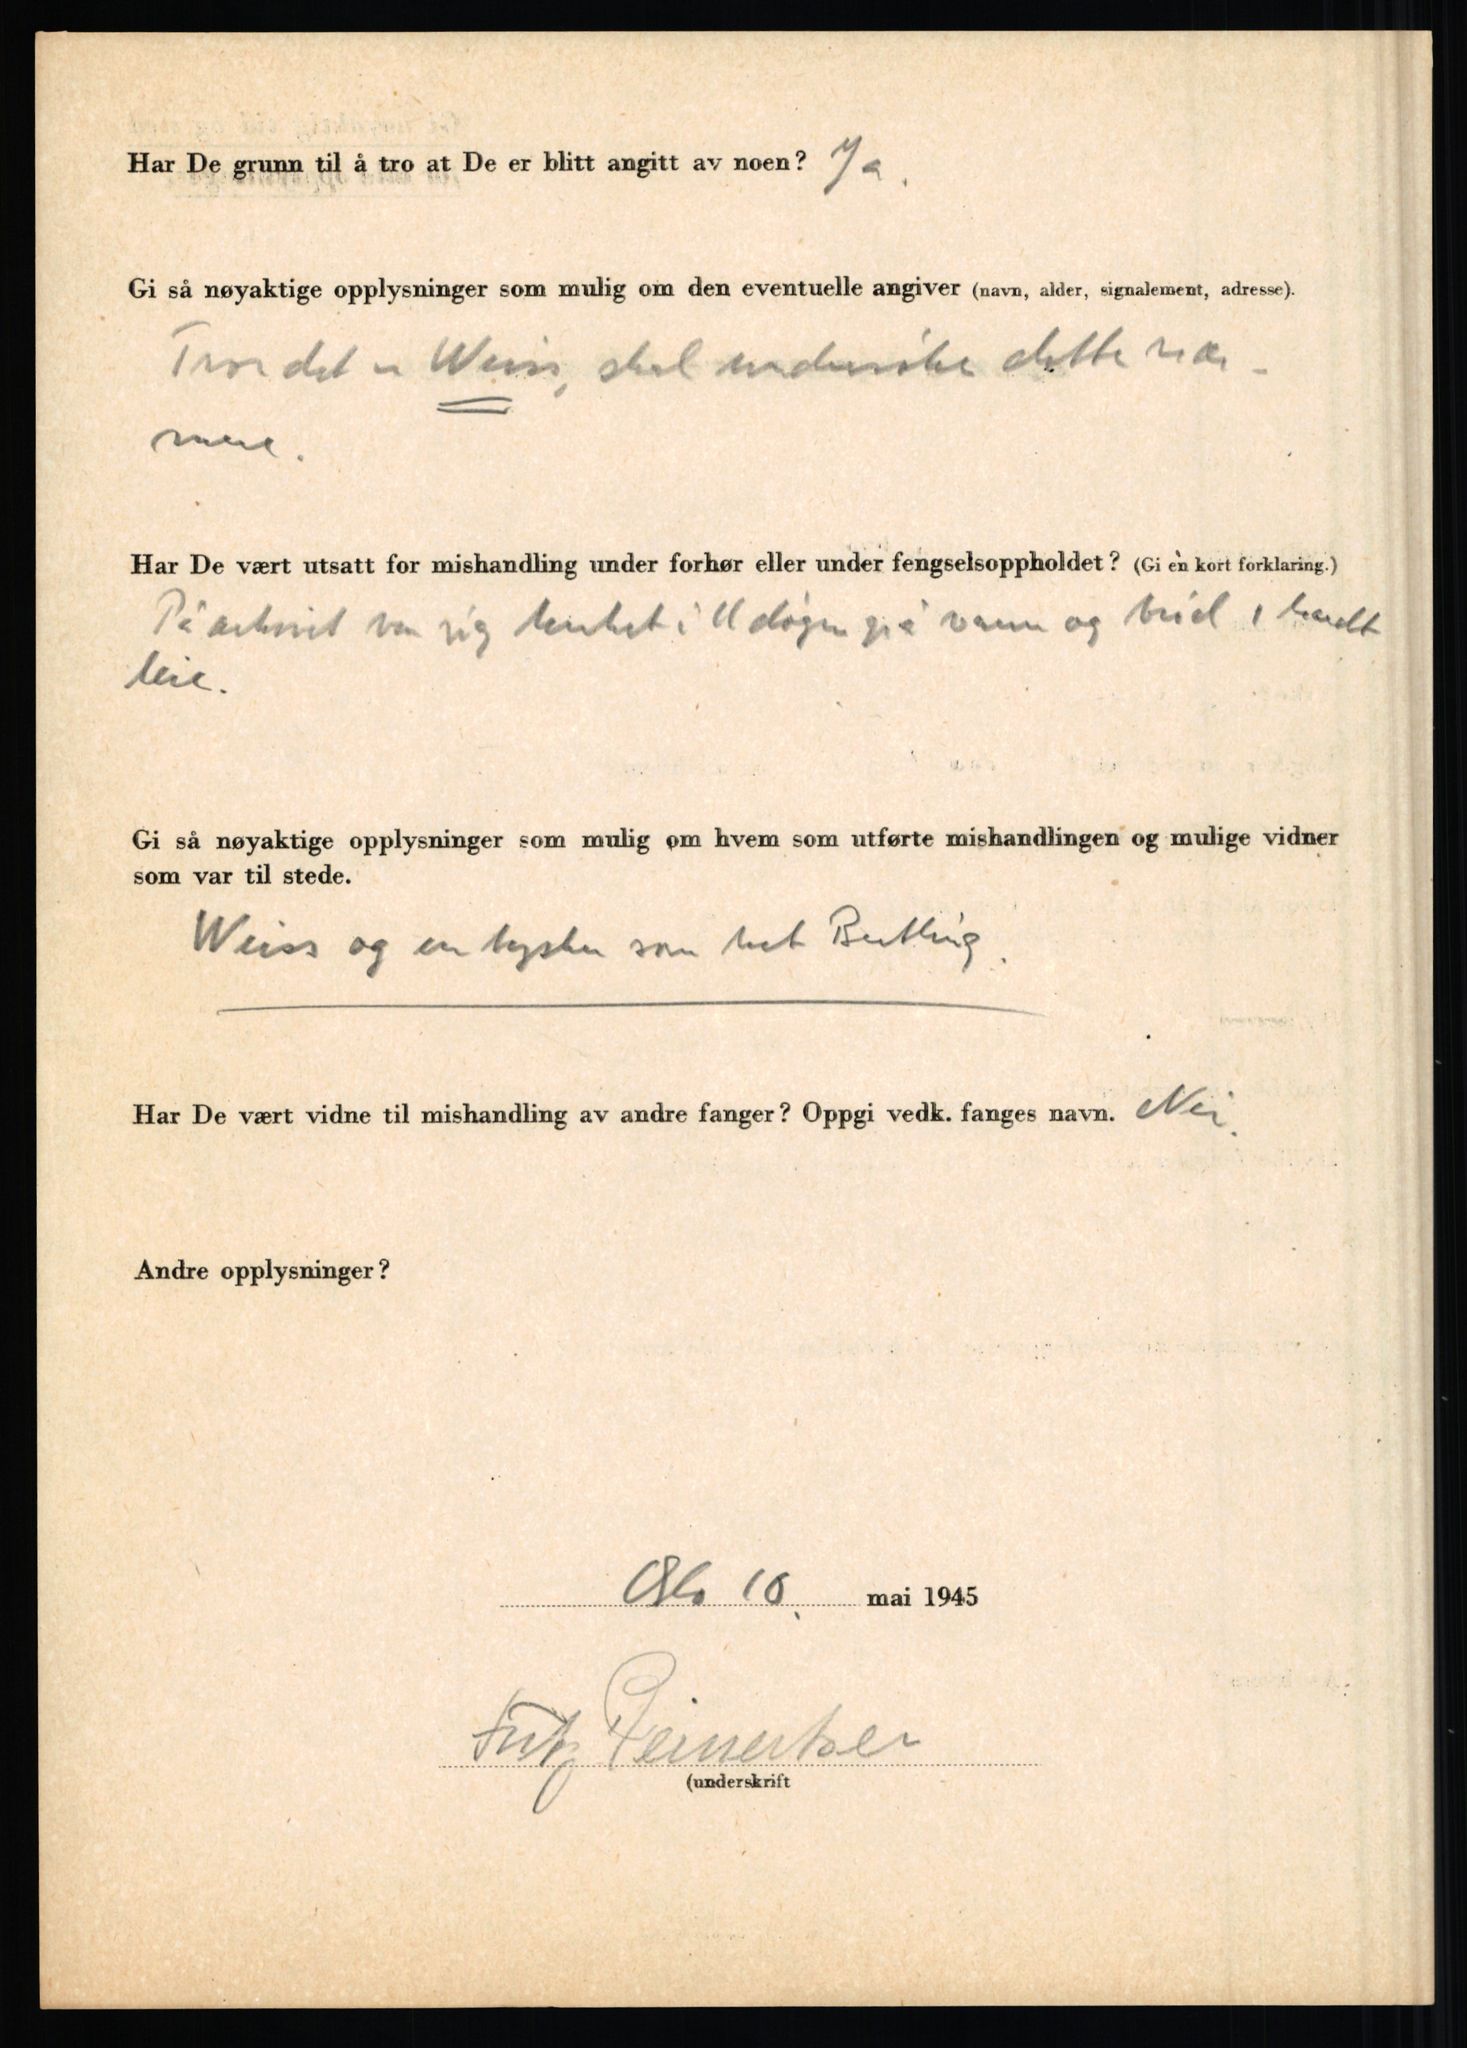 Har De grunn til å tro at De er blitt angitt av noen? Ja.
Gi så nøyaktige opplysninger som mulig om den eventuelle angiver (navn, alder, signalement, adresse).
Tror det er Weiss, skal undersøke dette nær-
mere.
Har De vært utsatt for mishandling under forhør eller under fengselsoppholdet? (Gi en kort forklaring.)
På arkivet var jeg lenket i 11 døgn på vann og brød, hardt
leie.
Gi så nøyaktige opplysninger som mulig om hvem som utførte mishandlingen og mulige vidner
som var til stede.
Weiss og en tysker som het Bertling.
Har De vært vidne til mishandling av andre fanger? Oppgi vedk. fanges navn. Nei.
Andre opplysninger?
Oslo 10. mai 1945
Fritz
(underskrift